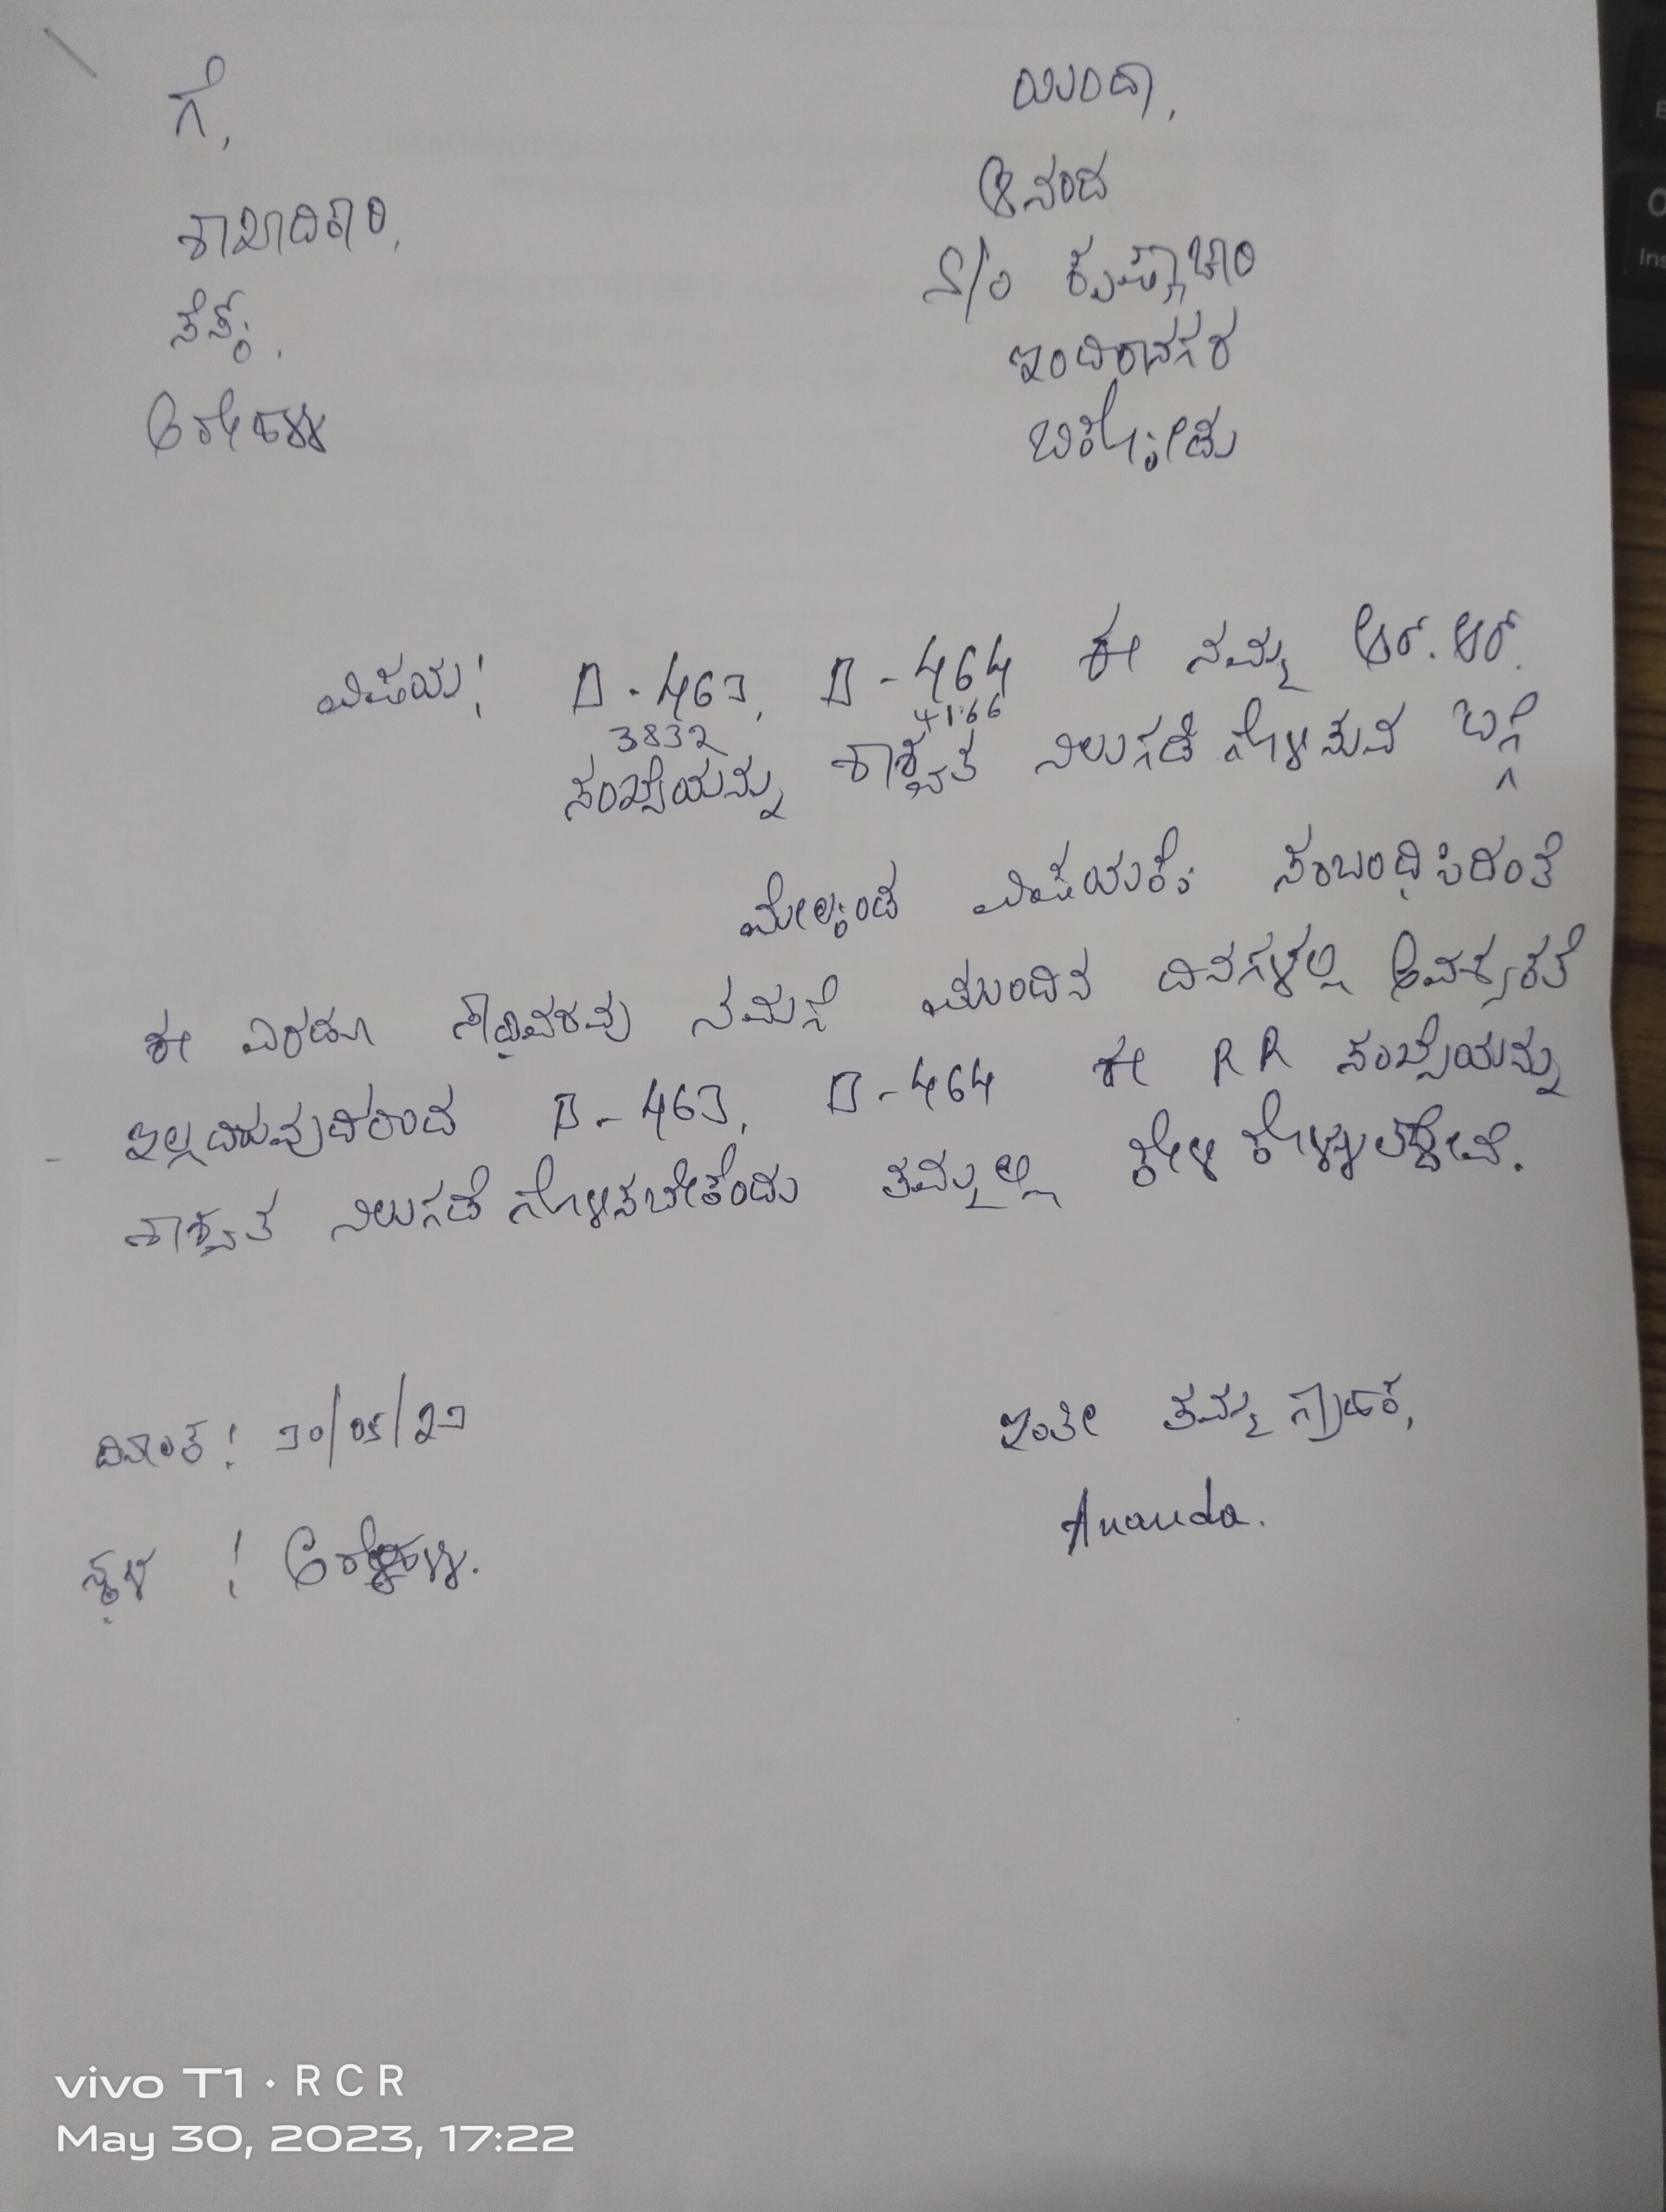 ಗೆ,
ಶಾಖಾದಿಕಾರಿ,
ಸೆಸ್ಕಂ,
ಅರೇಹಳ್ಳಿ
ಯಿಂದಾ,
ಆನಂದ
S/o ಕೃಷ್ಣಾಚಾರಿ
ಇಂದಿರಾನಗರ
ಬಿಕ್ಕೋಡು
ವಿಷಯ: D-463, D-464 ಈ ನಮ್ಮ ಆರ್.ಆರ್.
3832 4166
ಸಂಖ್ಯೆಯನ್ನು ಶಾಶ್ವತ ನಿಲುಗಡೆಗೊಳಿಸುವ ಬಗ್ಗೆ
ಮೇಲ್ಕಂಡ ವಿಷಯಕ್ಕೆ ಸಂಬಂಧಿಸಿದಂತೆ
ಈ ಎರಡೂ ಸ್ಥಾವರವು ನಮಗೆ ಮುಂದಿನ ದಿನಗಳಲ್ಲಿ ಅವಶ್ಯಕತೆ
ಇಲ್ಲದಿರುವುದರಿಂದ D-463, D-464 ಈ RR ಸಂಖ್ಯೆಯನ್ನು
ಶಾಶ್ವತ ನಿಲುಗಡೆಗೊಳಿಸಬೇಕೆಂದು ತಮ್ಮಲ್ಲಿ ಕೇಳಿಕೊಳ್ಳುತ್ತೇವೆ.
ದಿನಾಂಕ: 30/05/23
ಸ್ಥಳ : ಅರೇಹಳ್ಳಿ.
ಇಂತೀ ತಮ್ಮ ಗ್ರಾಹಕ,
Ananda.
vivo T1 · RCR
May 30, 2023, 17:22